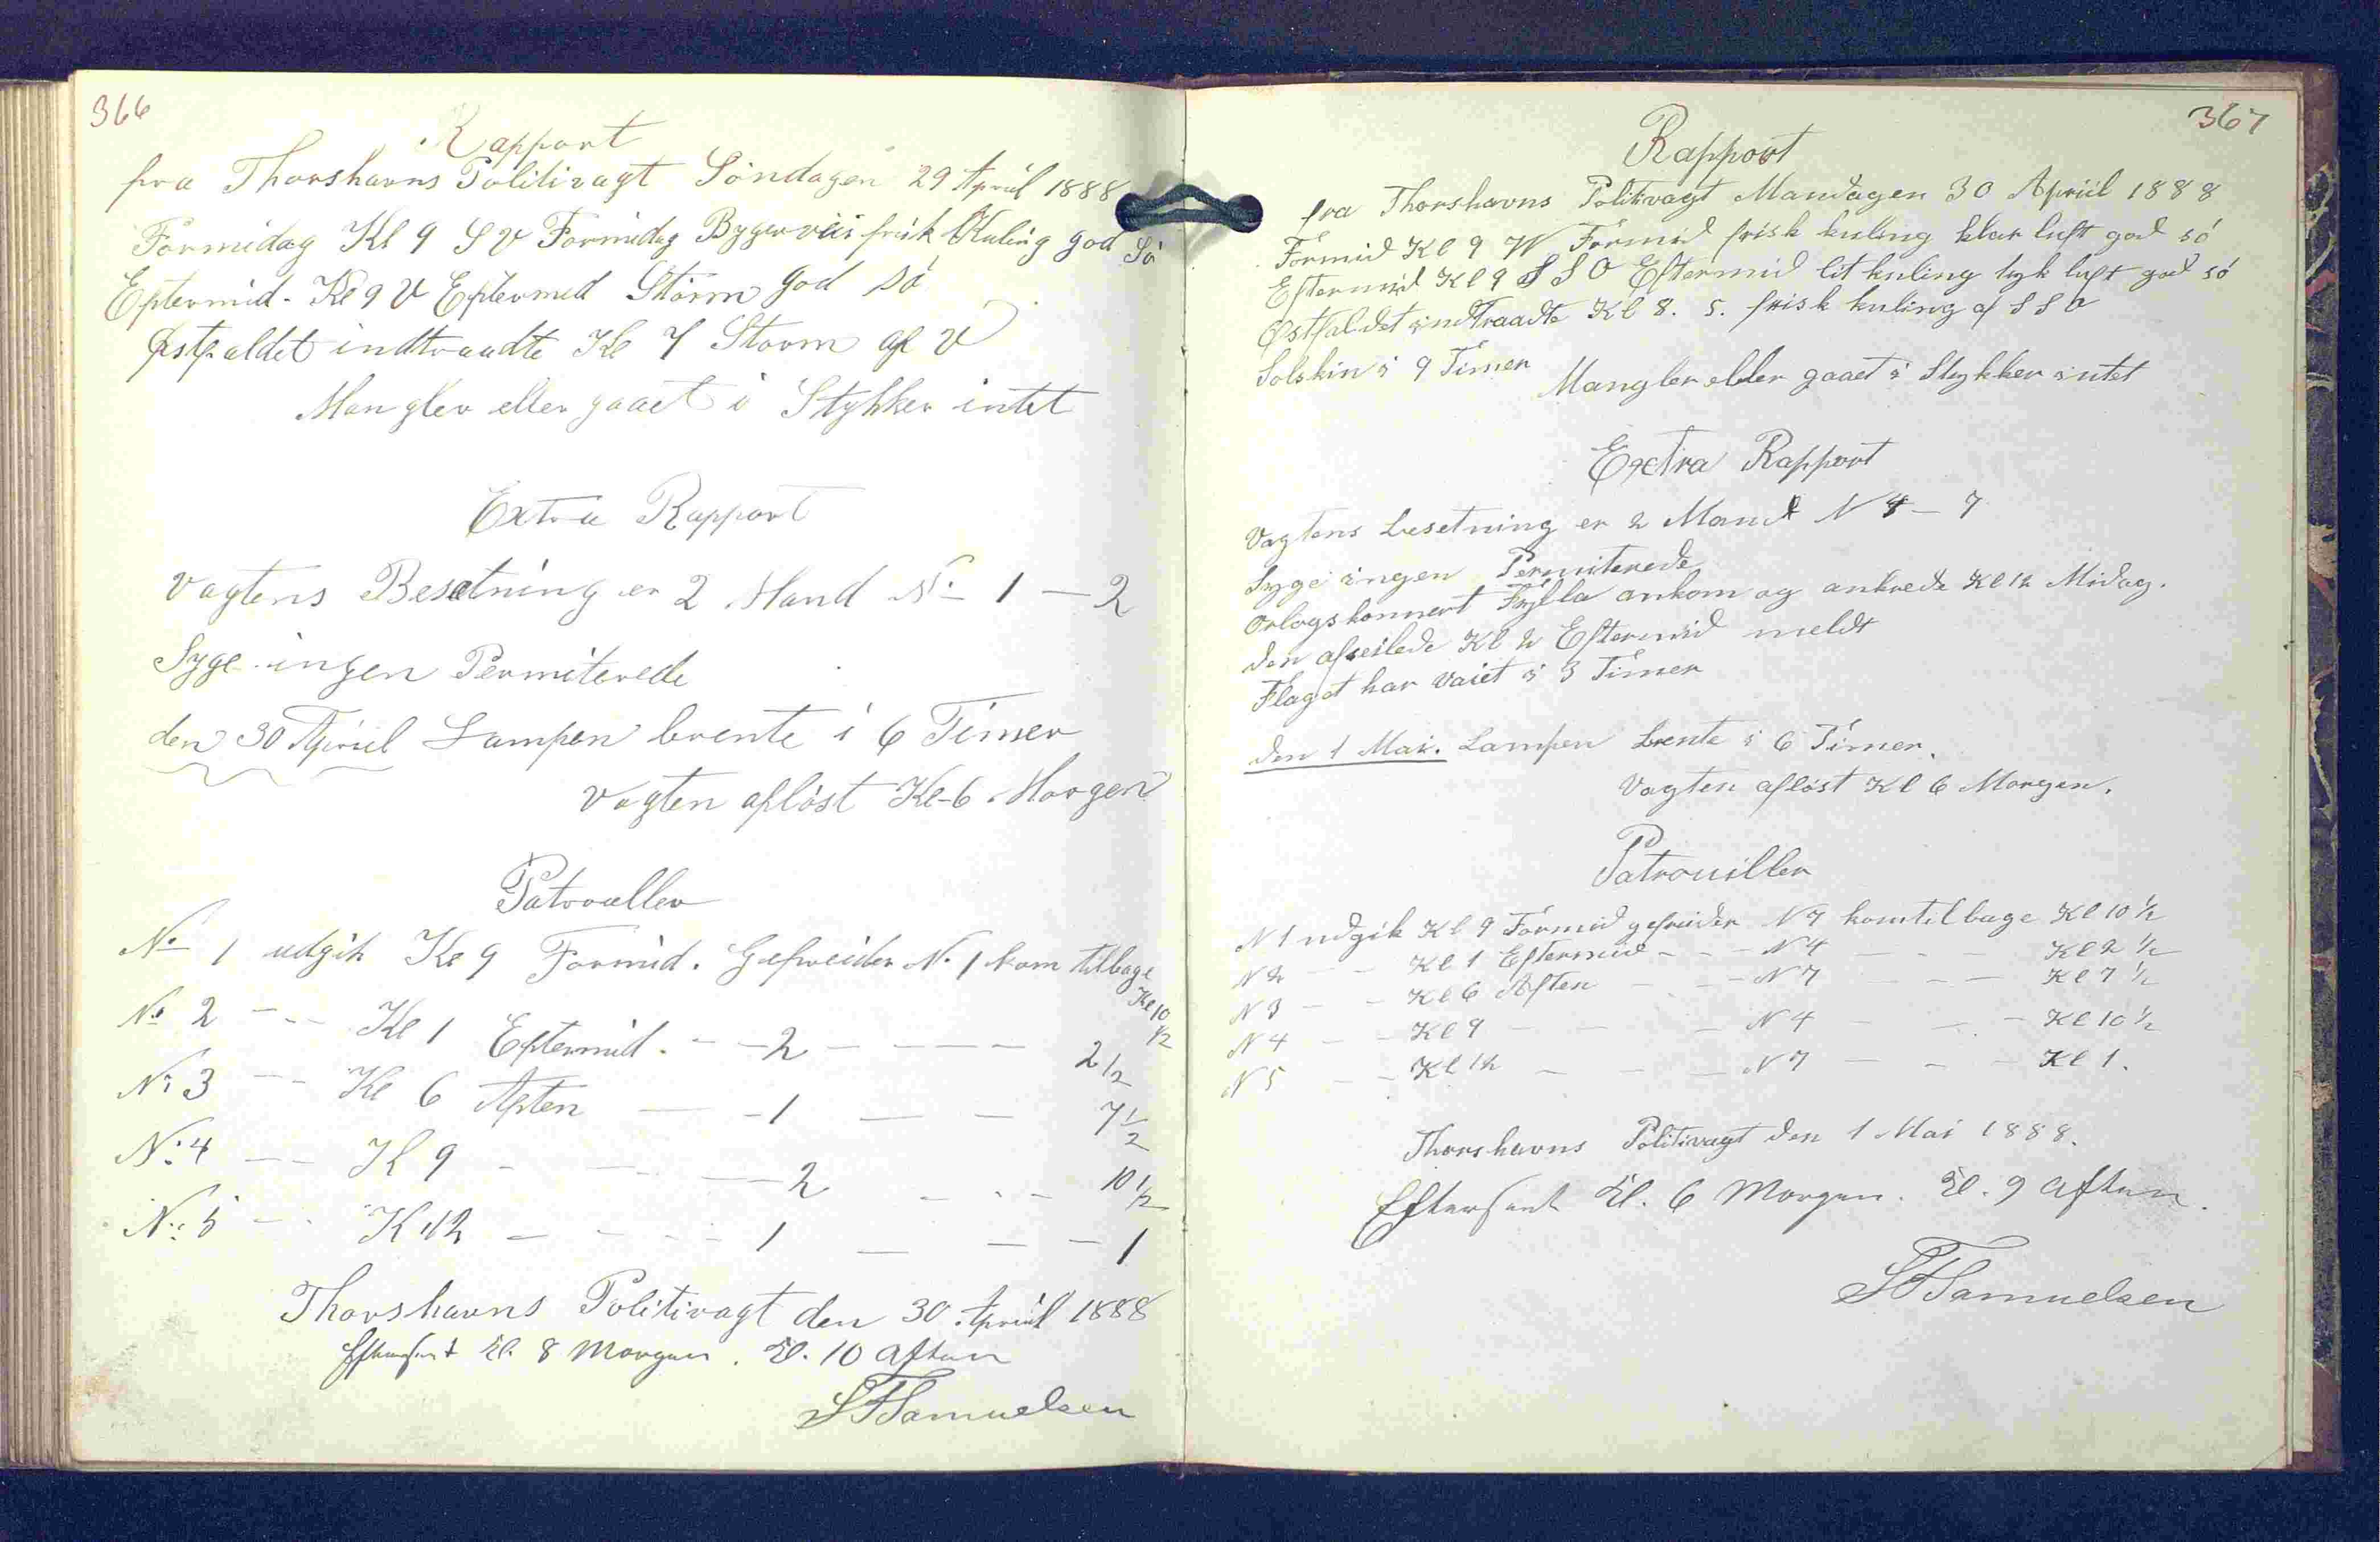 366
Rapport
fra Thorshavns Politivagt Söndagen 29 Apriil 1888
Formidag Kl 9 S V Formidag Bygerviis frisk Kuling god Sö
Eftermid. Kl 9 V Eftermed Storm god sö
Østfaldet indtraadte Kl 7 Storm af V
Mangler eller gaaet i Stykker intet
Extra Rapport
Vagtens Besetning er 2 Mand No 1 — 2
Syge ingen Permiterede
den 30 Apriil Lampen brente i 6 Timer
Vagten aflöst Kl-6 Morgen
Patrouller
No 1 udgik Kl 9 Formid. Gefreider No 1 kom tilbage Kl 10 1/2
No 2 - - Kl 1 Eftermid. - - 2 - - - - 2 1/2
No 3 - - Kl 6 Aften — - 1 — — 7 1/2
No 4 - - Kl 9 - - - - 2 - - - 10 1/2
No 5 - - Kl 12 - - - - 1 — — - 1
Thorshavns Politivagt den 30 Apriil 1888
Efterseet Kl. 8 Morgen. Kl. 10 Aften
S F Samuelsen
367
Rapport
fra Thorshavns Politivagt Mandagen 30 Apriil 1888
Formid Kl 9 W Formid frisk kuling klar luft god sö
Eftermid Kl 9 S S O Eftermid lit kuling tyk luft god sö
Østfaldet indtraadte Kl 8. 5. frisk kuling af S S O
Solskin i 9 Timer
Mangler eller gaaet i Stykker intet
Extra Rapport
Vagtens besetning er 2 Mand N 4 - 7
Syge ingen Permiterede
Orlogskonnert Fylla ankom og ankrede Kl 12 Midag.
den afseilede Kl 2 Eftermid meldt
Flaget har vaiet i 3 Timer
den 1 Mai. Lampen brente i 6 Timer.
Vagten aflöst Kl 6 Morgen.
Patrouiller
N 1 udgik Kl 9 Formid gefreider N 7 kom tilbage Kl 10 1/2
N 2 - - Kl 1 Eftermid - - N 4 - - - Kl 2 1/2
N 3 - - Kl 6 Aften - - - N 7 - - - Kl 7 1/2
N 4 - - Kl 9 - - - N 4 - - - Kl 10 1/2
N 5 - - Kl 12 - - - N 7 - - - Kl 1.
Thorshavns Politivagt den 1 Mai 1888.
Efterseet Kl. 6 Morgen. Kl. 9 Aften.
S F Samuelsen